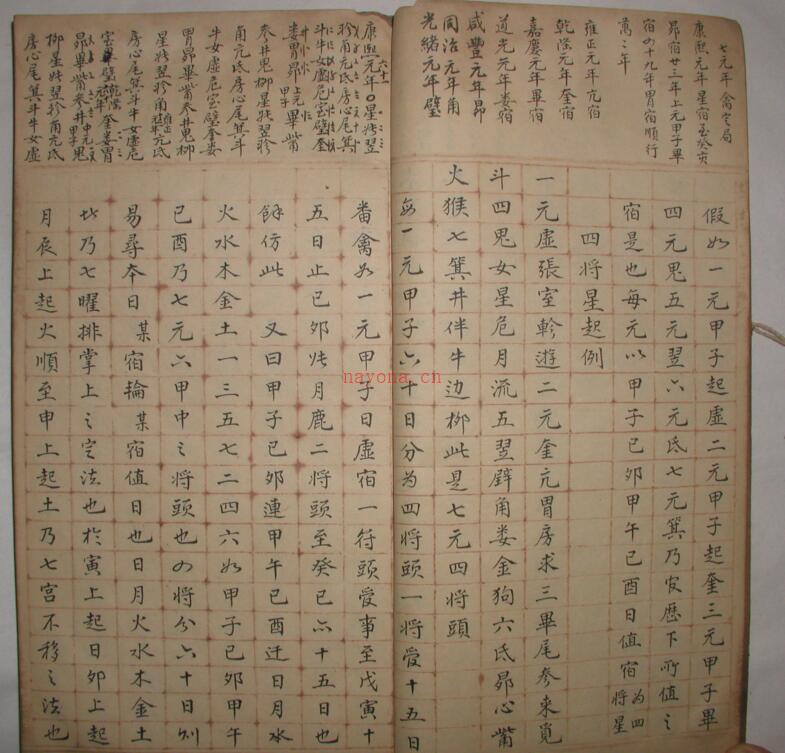 七元年禽定局
康熙元年星宿至癸亥
昴宿廿三年上元甲子畢
宿四十九年胃宿順行
萬二年
雍正元年亢宿
乾隆元年奎宿
嘉慶元年畢宿
道光元年婁宿
咸豐元年昴
同治元年角
光緒元年璧
假如一元甲子起虛二元甲子起奎三元甲子畢
四元鬼五元翌六元氐七元箕乃官歷下所值之
宿是也每元以甲子己卯甲午己酉日值宿為四將星
四將星起例
一元虛張室軫遊二元奎亢胃房求三畢尾參來覓
斗四鬼女星危月流五翌壁角娄金狗六氐昴心觜
火猴七箕井伴牛边柳此是七元四將頭
每一元甲子六十日分为四將頭一將受十五日
康熙六十一元年星張翌
軫角亢氐房心尾箕
斗牛女虛危室璧奎
婁胃昴上元甲子畢觜
參井鬼柳星張翌軫
角亢氐房心尾箕斗
牛女虛危室璧奎娄
胃昴畢觜參井鬼柳
星張翌軫角雍正元年亢氐
房心尾箕斗牛女虛危
室璧乾隆元年奎娄胃
昴畢觜參井中元甲子鬼
柳星張翌軫角亢氐
房心尾箕斗牛女虛
番禽如一元甲子日虛宿一符頭受事至戊寅十
五日止己卯張月鹿二將頭至癸巳六十五日也
餘仿此 又曰甲子己卯連甲午己酉迁日月水
火水木金土一三五七二四六如甲子己卯甲午
己酉乃七元六甲中之將頭也四將分六十日則
易尋夲日某宿輪某宿值日也日月火水木金土
此乃七曜排掌上之定法也於寅上起日卯上起
月辰上起火順至申上起土乃七宮不移之法也
nayona.cn